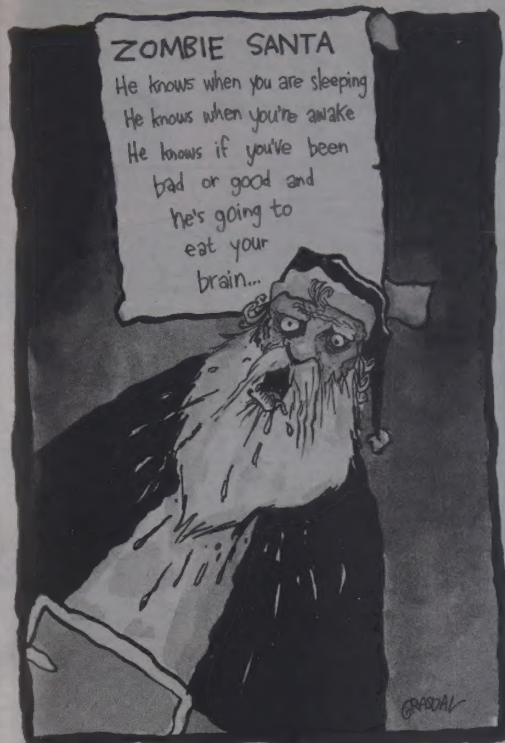 ZOMBIE SANTA
He knows when you are sleeping
He knows when you're awake
He knows if you've been
bad or good and
he's going to
eat your
brain...
GRASDAL